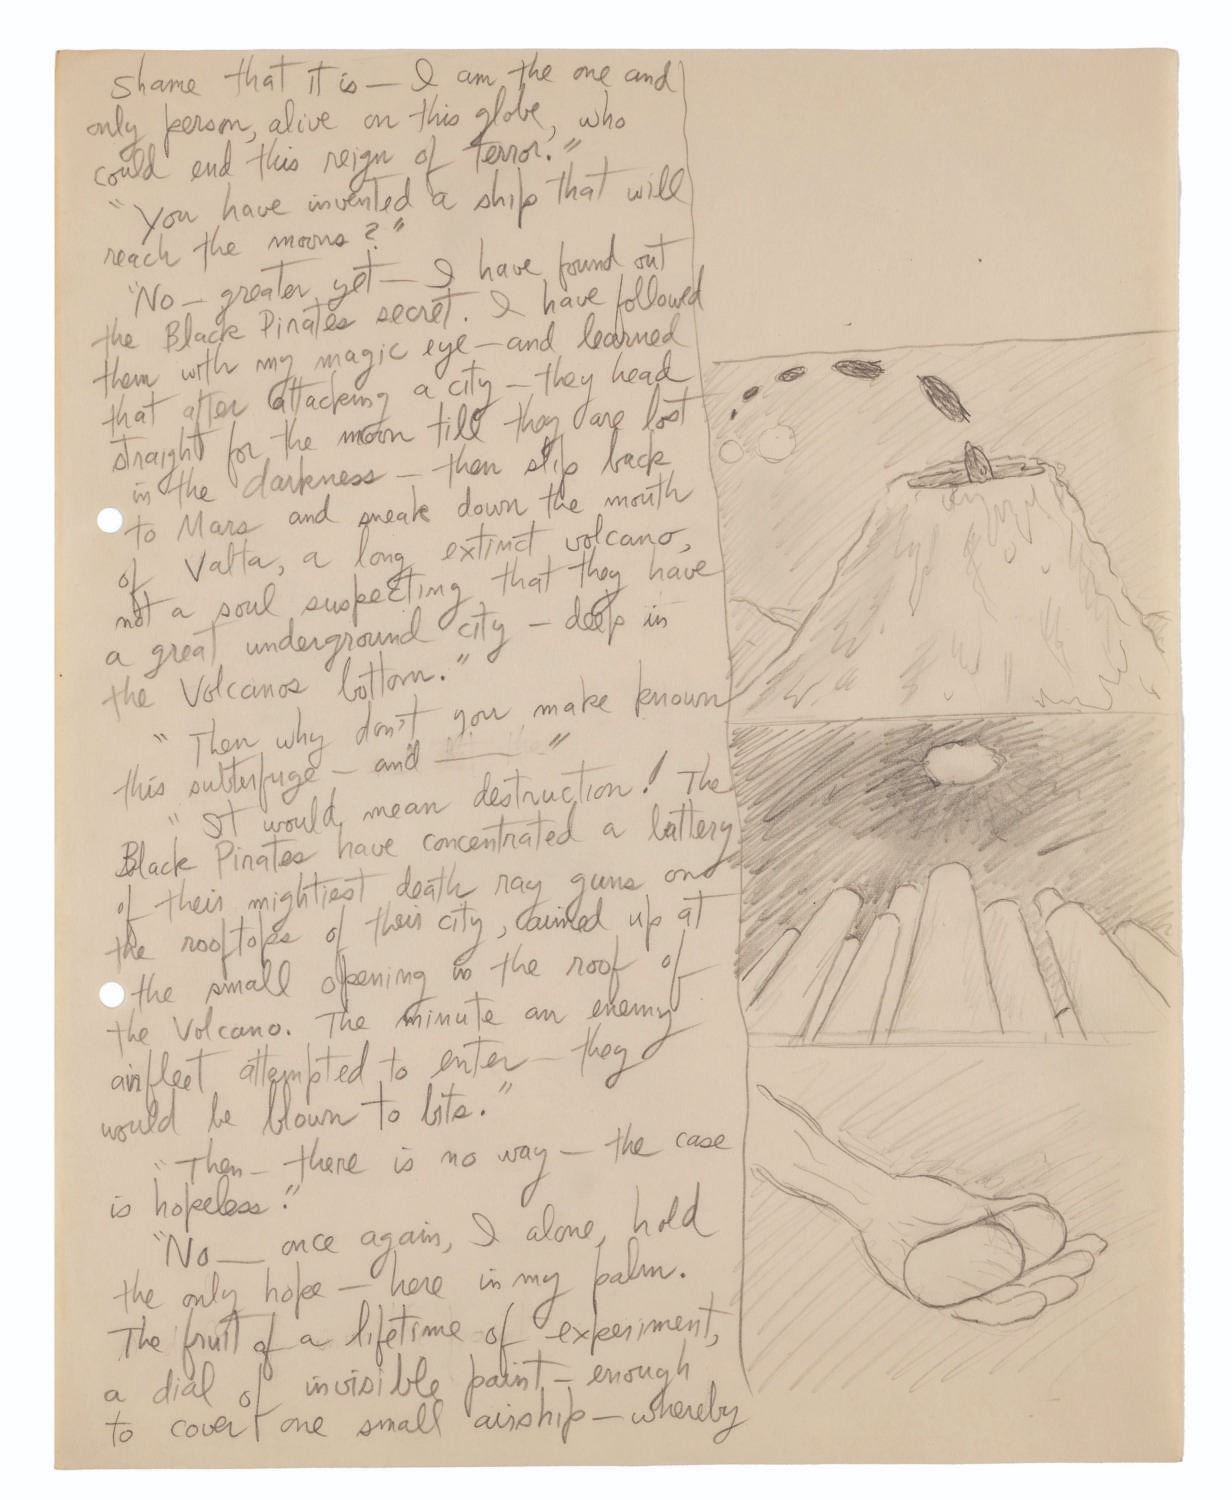 Shame that it is — I am the one and
only person, alive on this globe, who
could end this reign of terror."
"You have invented a ship that will
reach the moons?"
"No — greater yet — I have found out
the Black Pirates secret. I have followed
them with my magic eye — and learned
that after attacking a city — they head
straight for the moon till they are lost
in the darkness — then slip back
to Mars and sneak down the mouth
of Valta, a long extinct volcano,
not a soul suspecting that they have
a great underground city — deep in
the Volcanos bottom."
"Then why don't you make known
this subterfuge — and ——"
"It would mean destruction! The
Black Pirates have concentrated a battery
of their mightiest death ray guns on
the rooftops of their city, aimed up at
the small opening in the roof of
the Volcano. The minute an enemy
airfleet attempted to enter — they
would be blown to bits."
"Then — there is no way — the case
is hopeless."
"No — once again, I alone, hold
the only hope — here in my palm.
The fruit of a lifetime of experiment,
a dial of invisible paint — enough
to cover one small airship — whereby